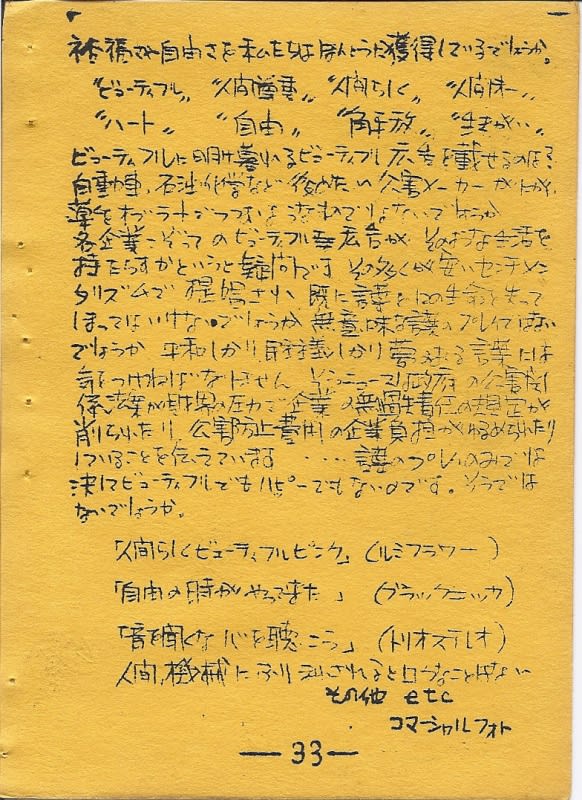 裕福さや自由さを私たちはほんとうに獲得しているでしょうか。
“ビューティフル〟 “人間尊重〟 “人間らしく〟 “人間オー〟
“ハート〟 “自由〟 “解放〟 “生きがい〟
ビューティフルに明け暮れいるビューティフル広告を載せるのは?
自動車、石油化学など後めたい公害メーカーが
薬をオブラートでつつむようなものではないでしょうか
各企業こぞってのビューティフルな広告が そのような生活を
持たらすかというと疑問です その多くが安いセンチメン
タリズムで 提唱され 既に言葉としての生命を失って
しまってはいけないでしょうか 無意味な言葉のプレイではない
でしょうか 平和しかり 民主主義しかり 夢みる言葉には
気をつけねばなりません そのニュースは政府の公害関
係法案が財界の圧力で企業の無過失責任の規定が
削られたり 公害防止費用の企業負担がゆるめられたり
していることを伝えています ……言葉のプレイのみでは
決してビューティフルでもハッピーでもないのです。そうでは
ないでしょうか。
「人間らしくビューティフルピンク」(ルミフラワー)
「自由の時がやってきた」 (ブラックニッカ)
「音を聞くな 心を聴こう」(トリオステレオ)
人間、機械にふりまわされるとロクなことはない
その他 etc
コマーシャルフォト
— 33 —